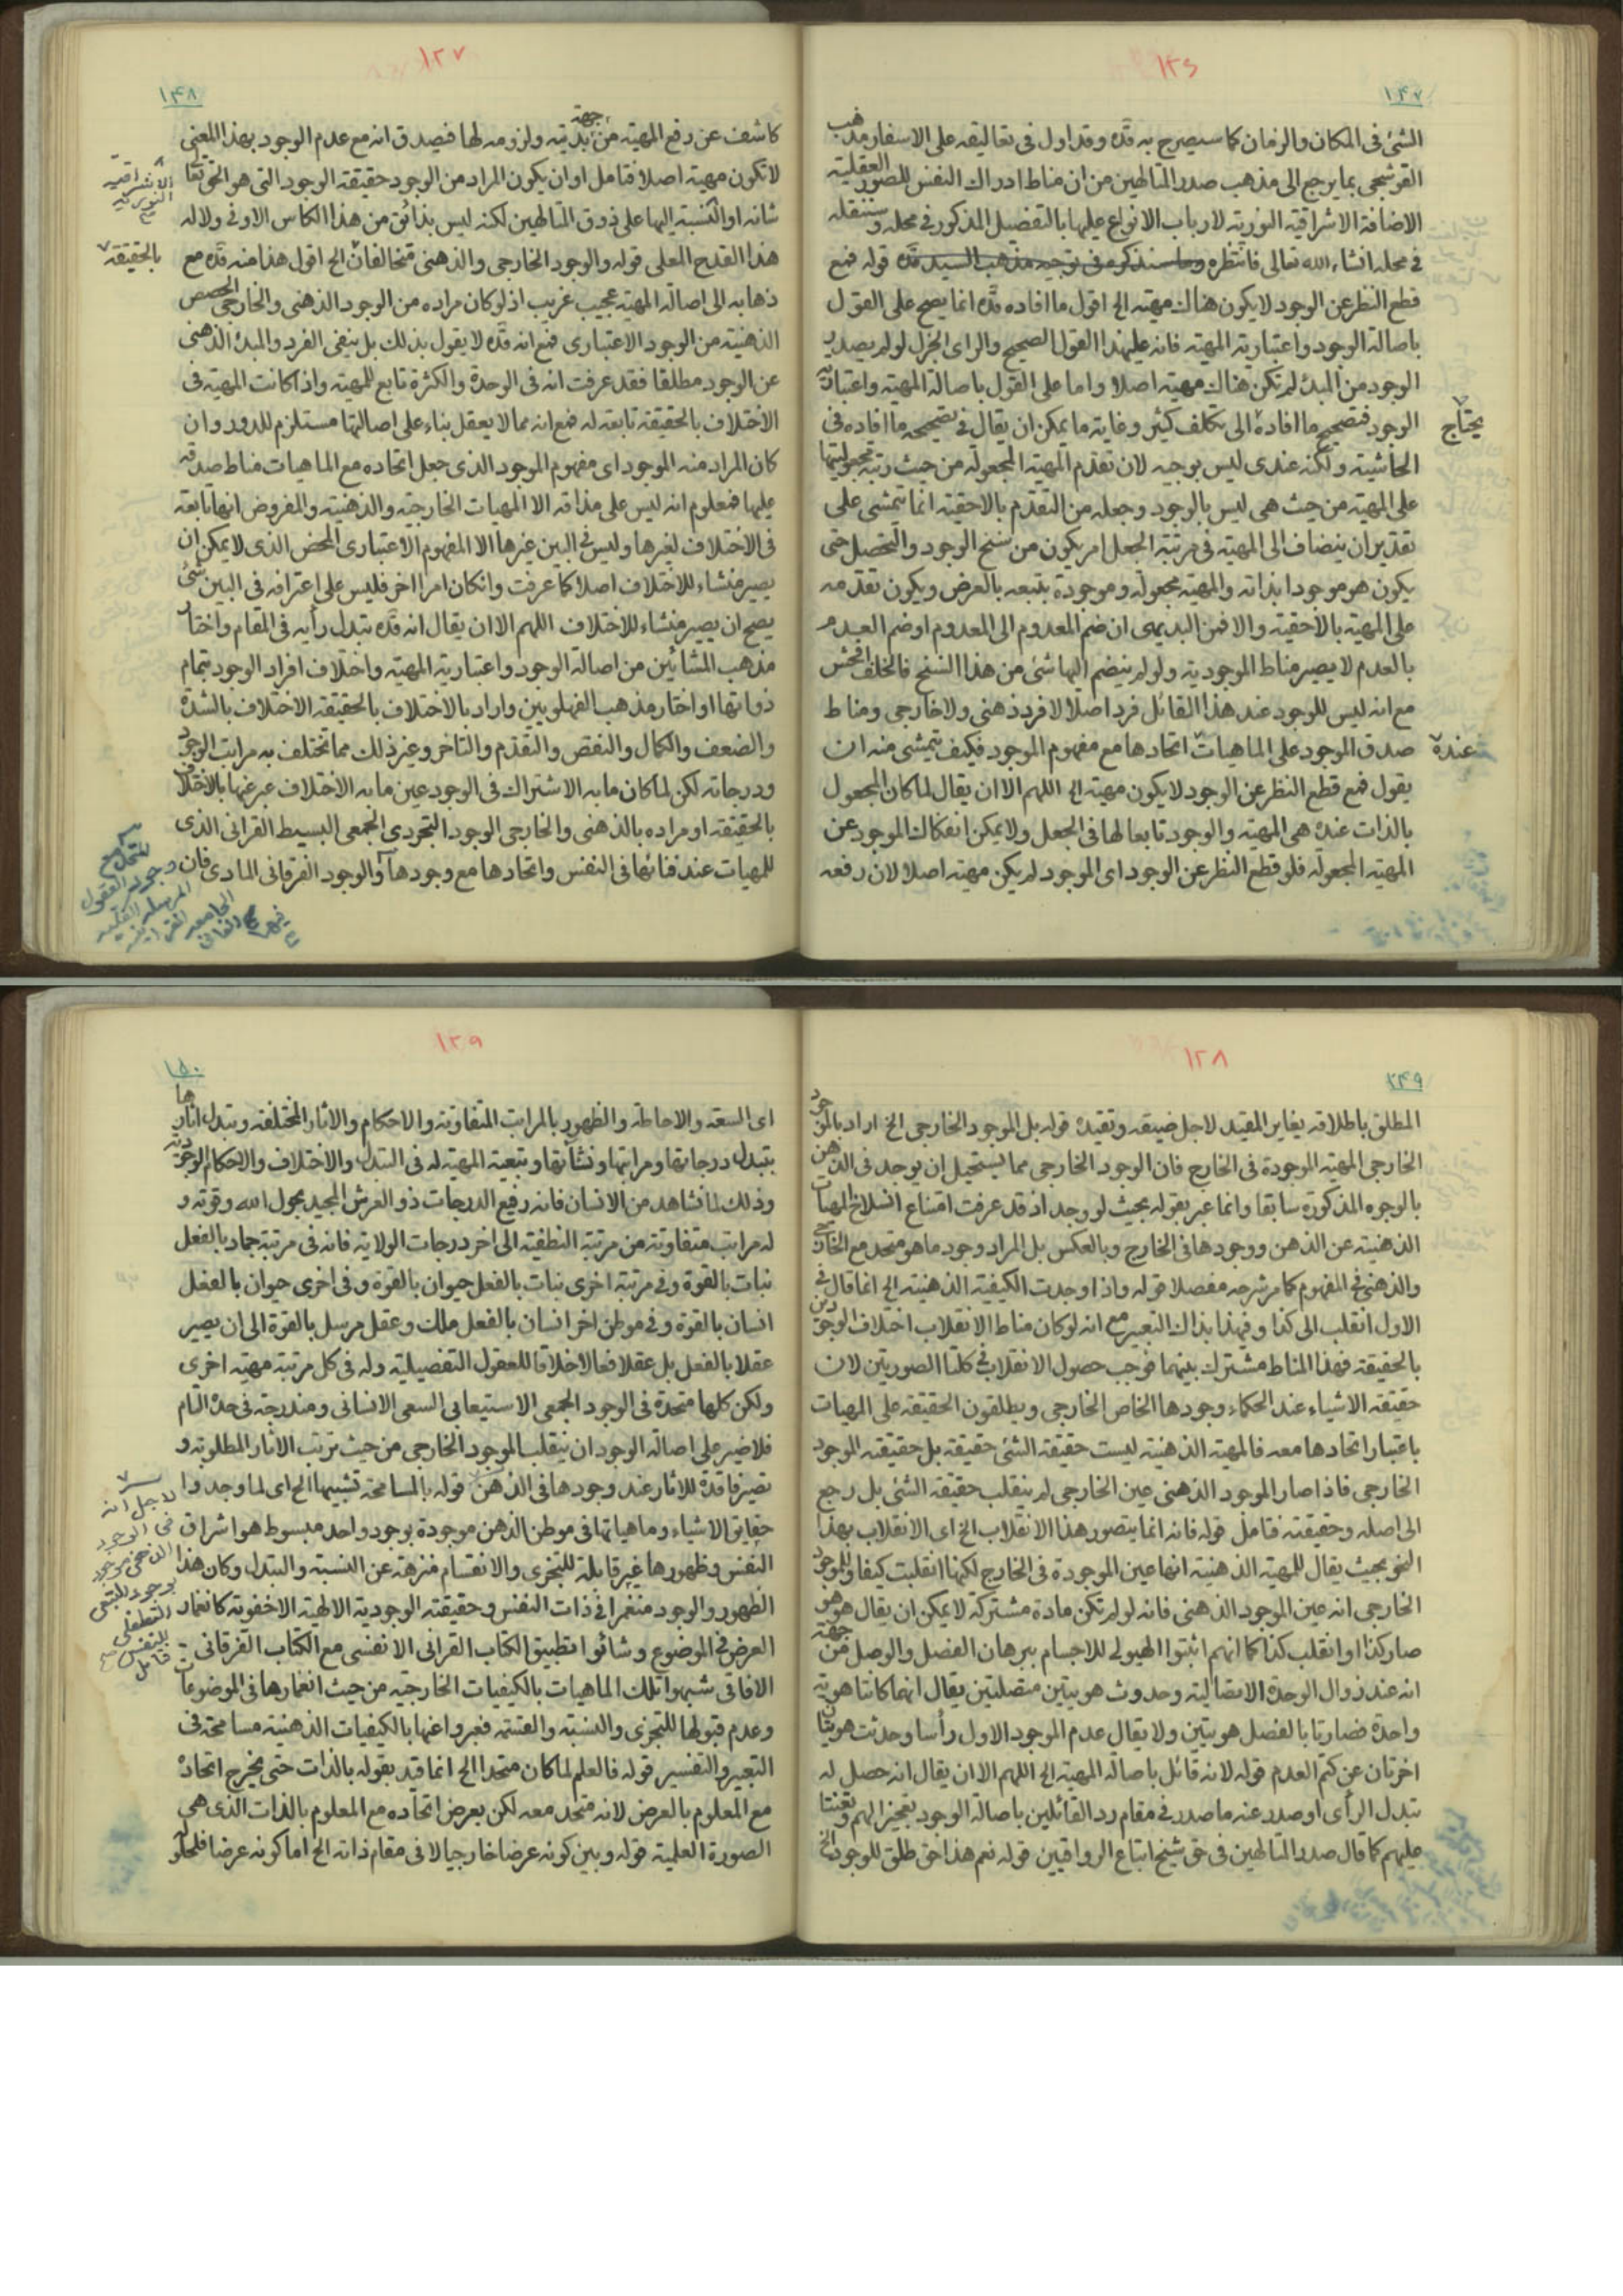 ١٢٦
١٤٧
الشئ فى المكان والزمان كما سيصرح به قده وقد اول فى تعاليقه على الاسفار مذهب
القوشجى بما يرجع الى مذهب صدر المتالهين من ان مناط ادراك النفس للصور العقلية
الاضافة الاشراقية النورية لارباب الانواع عليها بالتفصيل المذكور فى محله وسننقله
فى محله انشاء الله تعالى فانتظره وما سنذكره فى توجيه مذهب السيد قده قوله فمع
قطع النظر عن الوجود لا يكون هناك مهية الخ اقول ما افاده قده انما يصح على القول
باصالة الوجود واعتبارية المهية فانه على هذا القول الصحيح والراى الجزل لو لم يصدر
الوجود من المبدء لم تكن هناك مهية اصلا واما على القول باصالة المهية واعتبارية
الوجود فتصحيح ما افاده الى تكلف كثير وغاية ما يمكن ان يقال فى تصحيحه ما افاده فى
يحتاج
الحاشية ولكنه عندى ليس بوجيه لان تقدم المهية المجعولة من حيث رتبة مجعوليتها
على المهية من حيث هى ليس بالوجود وجعله من التقدم بالاحقية انما يتمشى على
تقدير ان ينضاف الى المهية فى مرتبة الجعل امر يكون من سنخ الوجود والتحصل حتى
يكون هو موجودا بذاته والمهية مجعولة وموجودة بتبعه بالعرض ويكون تقدمه
على المهية بالاحقية والا فمن البديهى ان ضم المعدوم الى المعدوم او ضم العدم
بالعدم لا يصير مناط الموجودية ولو لم ينضم اليها شئ من هذا السنخ فالخلف افحش
مع انه ليس للوجود عند هذا القائل فرد اصلا لا فرد ذهنى ولا خارجى ومناط
صدق الموجود على الماهيات اتحادها مع مفهوم الموجود فكيف يتمشى منه ان
عنده
يقول فمع قطع النظر عن الوجود لا يكون مهية الخ اللهم الا ان يقال لما كان المجعول
بالذات عنده هى المهية والوجود تابعا لها فى الجعل ولا يمكن انفكاك الموجود عن
المهية المجعولة فلو قطع النظر عن الوجود اى الموجود لم يكن مهية اصلا لان رفعه
١٢٧
١٤٨
كاشف عن رفع المهية من جهة بديته ولزومه لها فيصدق انه مع عدم الوجود بهذا المعنى
لا تكون مهية اصلا فتامل او ان يكون المراد من الوجود حقيقة الوجود التى هو الحق تعالى
الاشراقية
النورية
شانه او النسبة اليها على ذوق المتالهين لكنه ليس بذائق من هذا الكاس الاوفى ولا له
هذا القدح المعلى قوله والوجود الخارجى والذهنى متخالفان الخ اقول هذا منه قده مع
بالحقيقة
ذهابه الى اصالة المهية عجيب غريب اذ لو كان مراده من الوجود الذهنى والخارجى الحصص
الذهنية من الوجود الاعتبارى فمع انه قده لا يقول بذلك بل ينفى الفرد والمبدء الذهنى
عن الوجود مطلقا فقد عرفت انه فى الوحدة والكثرة تابع للمهية واذا كانت المهية فى
الاختلاف بالحقيقة تابعة له فمع انه مما لا يعقل بناء على اصالتها مستلزم للدور وان
كان المراد منه الموجود اى مفهوم الموجود الذى جعل اتحاده مع الماهيات مناط صدقه
عليها فمعلوم انه ليس على مذاقه الا المهيات الخارجية والذهنية والمفروض انها تابعة
فى الاختلاف لغيرها وليس فى البين غيرها الا المفهوم الاعتبارى المحض الذى لا يمكن ان
يصير منشاء للاختلاف اصلا كما عرفت وان كان امرا اخر فليس على اعترافه فى البين شئ
يصح ان يصير منشاء للاختلاف اللهم الا ان يقال انه قده تبدل رأيه فى المقام واختار
مذهب المشائين من اصالة الوجود واعتبارية المهية واختلاف افراد الوجود بتمام
ذواتها او اختار مذهب الفهلويين واراد بالاختلاف بالحقيقة الاختلاف بالشدة
والضعف والكمال والنقص والتقدم والتاخر وغير ذلك مما تختلف به مراتب الوجود
ودرجاته لكن لما كان ما به الاشتراك فى الوجود عين ما به الاختلاف عبر عنها بالاختلاف
بالحقيقة او مراده بالذهنى والخارجى الوجود التجردى الجمعى البسيط القرانى الذى
للمهيات عند فنائها فى النفس واتحادها مع وجودها والوجود الفرقانى المادى فان
١٢٨
١٤٩
المطلق باطلاقه يغاير المقيد لاجل ضيقه وتقيده قوله بل الموجود الخارجى الخ اراد بالموجود
الخارجى المهية الموجودة فى الخارج فان الوجود الخارجى مما يستحيل ان يوجد فى الذهن
بالوجوه المذكورة سابقا وانما عبر بقوله بحيث لو وجد اذ قد عرفت امتناع انسلاخ المهيات
الذهنية عن الذهن ووجودها فى الخارج وبالعكس بل المراد وجود ما هو متحد مع الخارجى
والذهنى فى المفهوم كما مر شرحه مفصلا قوله واذا وجدت الكيفية الذهنية الخ انما قال فى
الاول انقلب الى كذا وفى هذا بذاك التعبير مع انه لو كان مناط الانقلاب اختلاف الوجودين
بالحقيقة فهذا المناط مشترك بينهما فوجب حصول الانقلاب فى كلتا الصورتين لان
حقيقة الاشياء عند الحكماء وجودها الخاص الخارجى ويطلقون الحقيقة على المهيات
باعتبار اتحادها معه فالمهية الذهنية ليست حقيقة الشئ حقيقة بل حقيقته الموجود
الخارجى فاذا صار الموجود الذهنى عين الخارجى لم ينقلب حقيقة الشئ بل رجع
الى اصله وحقيقته فتامل قوله فانه انما يتصور هذا الانقلاب الخ اى الانقلاب بهذا
النحو بحيث يقال للمهية الذهنية انها عين الموجودة فى الخارج لكنها انقلبت كيفا وللموجود
الخارجى انه عين الموجود الذهنى فانه لو لم تكن مادة مشتركة لا يمكن ان يقال هو هو
صار كذا او انقلب كذا كما انهم اثبتوا الهيولى للاجسام ببرهان الفصل والوصل من جهة
انه عند زوال الوحدة الاتصالية وحدوث هويتين متصلتين يقال انهما كانتا هوية
واحدة فصارتا بالفصل هويتين ولا يقال عدم الموجود الاول رأسا وحدثت هويتان
اخرتان عن كتم العدم قوله لانه قائل باصالة المهية الخ اللهم الا ان يقال انه حصل له
تبدل الرأى او صدر عنه ما صدر فى مقام رد القائلين باصالة الوجود تعجيزا لهم وتعنتا
عليهم كما قال صدر المتالهين فى حق شيخ اتباع الرواقيين قوله نعم هذا حق طلق للوجود الخ
١٢٩
١٥٠
اى السعة والاحاطة والظهور بالمراتب المتفاوتة والاحكام والاثار المختلفة وتبدل اثارها
بتبدل درجاتها ومراتبها ونشأتها وتبعية المهية له فى التبدل والاختلاف والاحكام الوجودية
وذلك لما نشاهد من الانسان فانه رفيع الدرجات ذو العرش المجيد بحول الله وقوته و
له مراتب متفاوتة من مرتبة النطفية الى اخر درجات الولاية فانه فى مرتبة جماد بالفعل
نبات بالقوة وفى مرتبة اخرى نبات بالفعل حيوان بالقوة وفى اخرى حيوان بالفعل
انسان بالقوة وفى موطن اخر انسان بالفعل ملك وعقل مرسل بالقوة الى ان يصير
عقلا بالفعل بل عقلا فعالا خلاقا للعقول التفصيلية وله فى كل مرتبة مهية اخرى
ولكن كلها متحدة فى الوجود الجمعى الاستيعابى السعى الانسانى ومندرجة فى حده التام
فلا ضير على اصالة الوجود ان ينقلب الموجود الخارجى من حيث ترتب الاثار المطلوبة و
تصير فاقدة للاثار عند وجودها فى الذهن قوله بالمسامحة تشبيها الخ اى لما وجدوا
حقايق الاشياء وماهياتها فى موطن الذهن موجودة بوجود واحد مبسوط هو اشراق
النفس وظهورها غير قابلة للتجزى والانقسام منزهة عن النسبة والتبدل وكان هذا
الظهور والوجود منغمرا فى ذات النفس وحقيقته الوجودية الالهية الاخفوية كانغمار
العرض فى الموضوع وشائوا تطبيق الكتاب القرانى الانفسى مع الكتاب الفرقانى
الافاقى شبهوا تلك الماهيات بالكيفيات الخارجية من حيث انغمارها فى الموضوعات
وعدم قبولها للتجزى والنسبة والقسمة فعبروا عنها بالكيفيات الذهنية مسامحة فى
التعبير والتفسير قوله فالعلم لما كان متحدا الخ انما قيد بقوله بالذات حتى يخرج اتحاده
مع المعلوم بالعرض لانه متحد معه لكن بعرض اتحاده مع المعلوم بالذات الذى هى
الصورة العلمية قوله وبين كونه عرضا خارجيا لا فى مقام ذاته الخ اما كونه عرضا فلحلوله